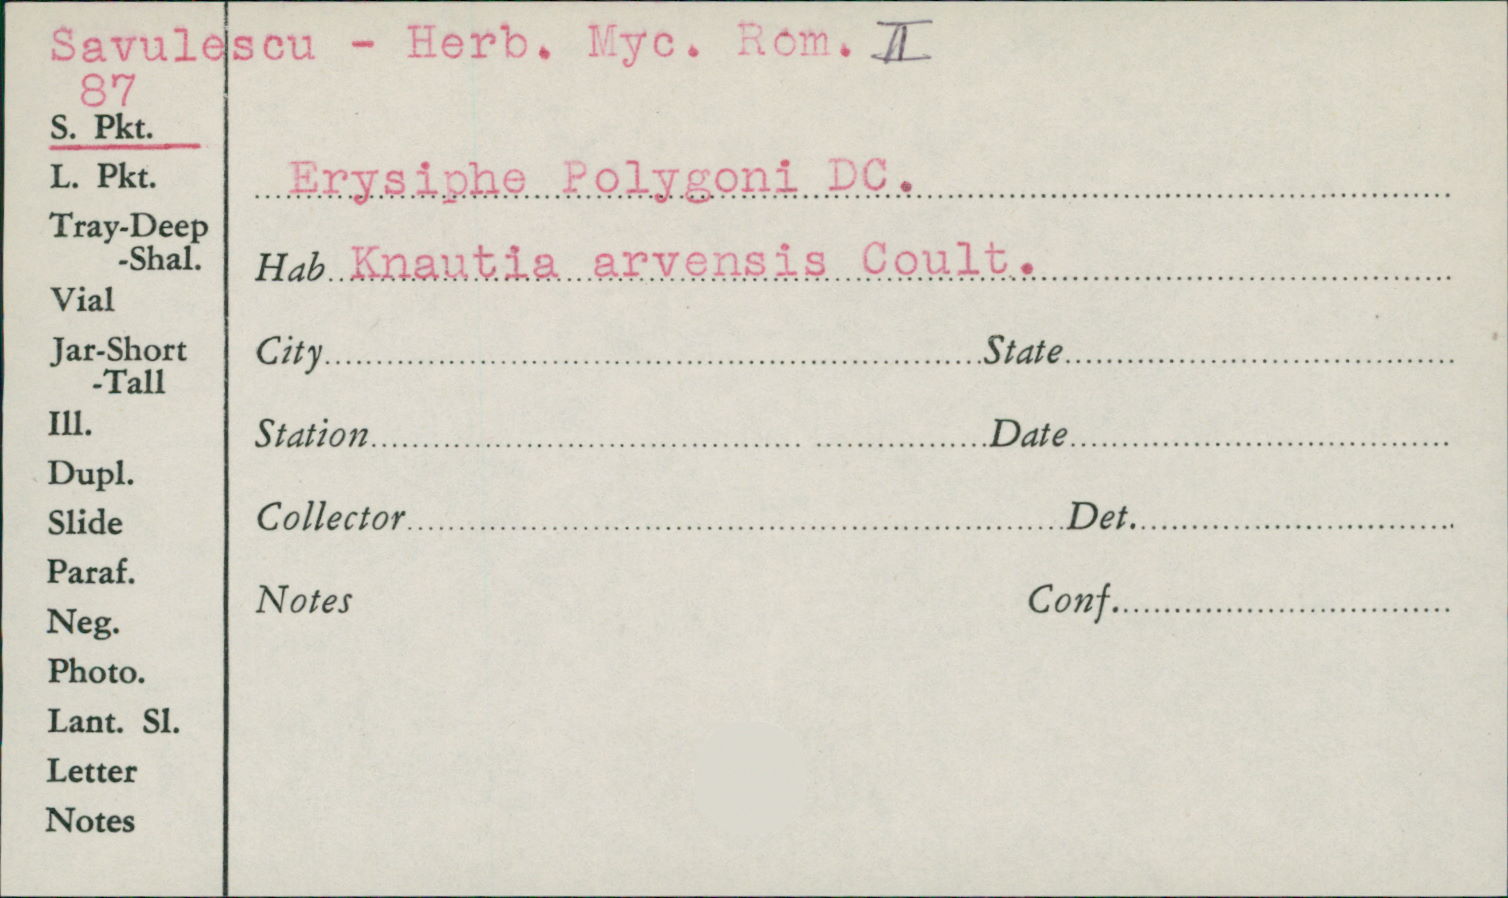 Savulescu - Herb. Myc. Rom. II
87
S. Pkt.
L. Pkt.
Tray-Deep
-Shal.
Vial
Jar-Short
-Tall
Ill.
Dupl.
Slide
Paraf.
Neg.
Photo.
Lant. Sl.
Letter
Notes
Erysiphe Polygoni DC.
Hab Knautia arvensis Coult.
City State
Station Date
Collector Det.
Notes Conf.